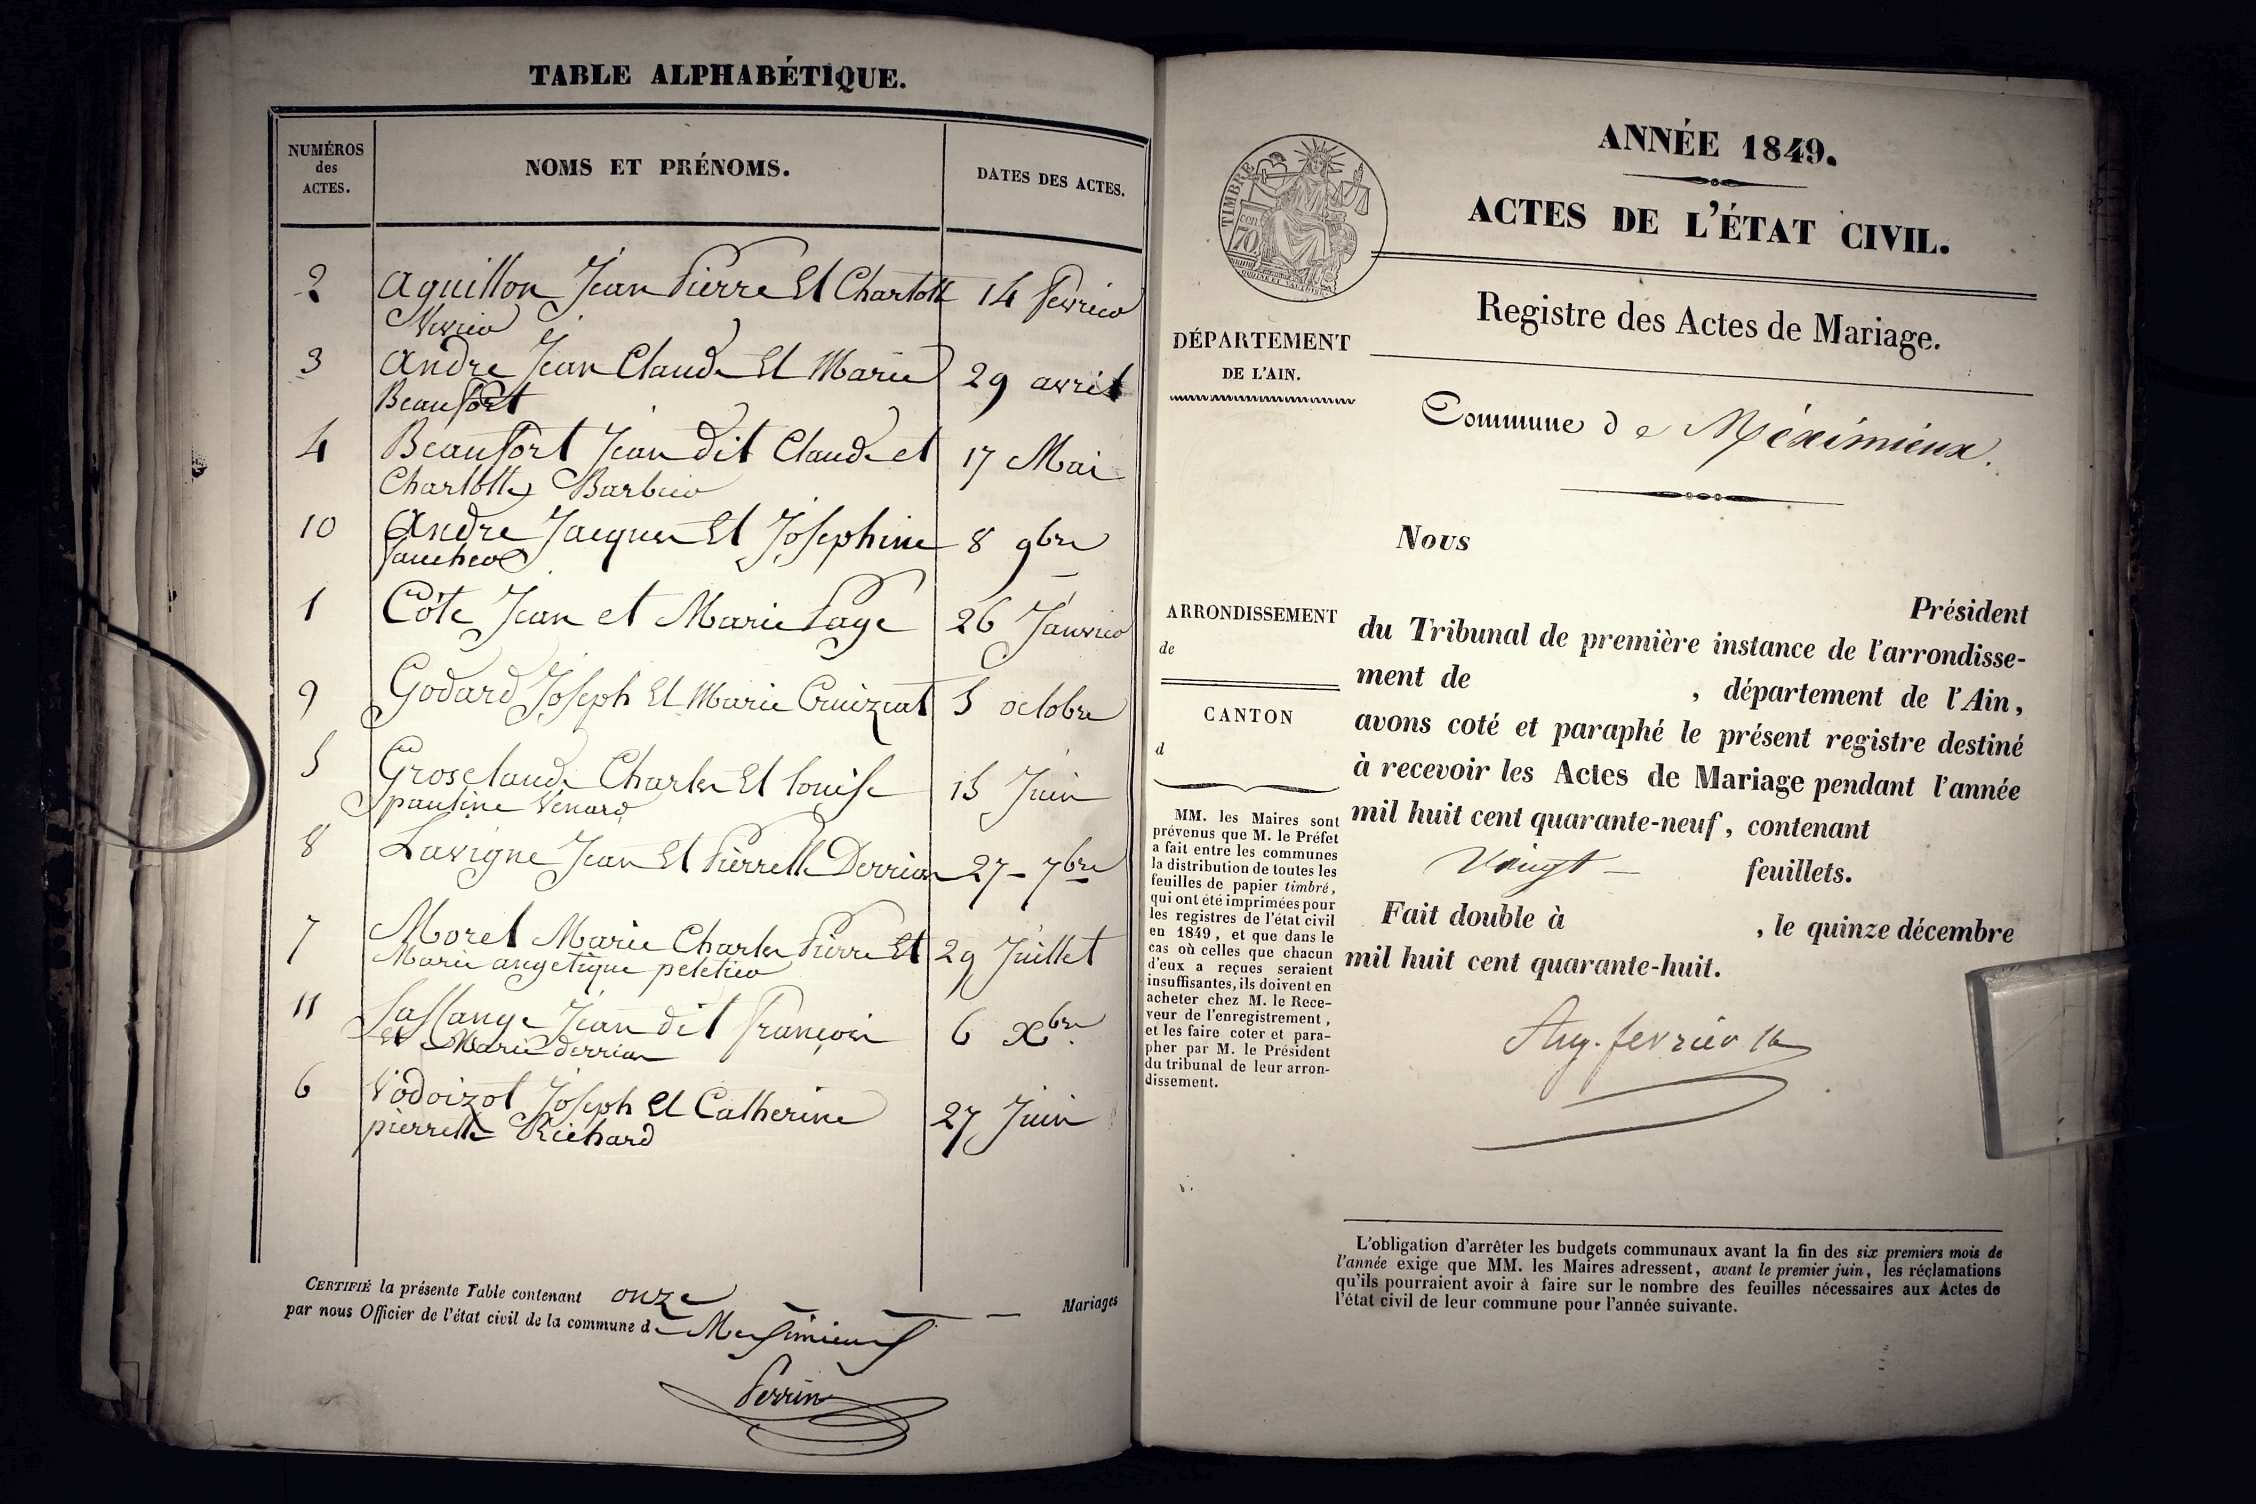 TABLE ALPHABÉTIQUE.
NUMÉROS
des
ACTES.
NOMS ET PRÉNOMS.
DATES DES ACTES.
2 Aguillon Jean Pierre Et Charlotte 14 fevrier
3 Andre Jean Claude Et Marie 29 avril
Beaufort
4 Beaufort Jean dit Claude et 17 Mai
Charlotte Barbier
10 Andre Jacques Et Josephine 8 9bre
1 Côte Jean et Marie Page 26 Janvier
9 Godard Joseph Et Marie Cruizat 5 octobre
5 Groselaude Charles Et Louise 15 Juin
pauline Venard
8 Lavigne Jean Et Pierrette Derrias 27 - 7bre
7 Morel Marie Charles Pierre Et 29 Juillet
Marie angelique peletier
11 Jean dit françois 6 Xbre
et Marie derrias
6 Vodoizot Joseph Et Catherine 27 Juin
pierrette Richard
CERTIFIÉ la présente Table contenant onze — Mariages
par nous Officier de l'état civil de la commune de Meximieux
Perrin
TIMBRE
70
ANNÉE 1849.
ACTES DE L'ÉTAT CIVIL.
Registre des Actes de Mariage.
DÉPARTEMENT
DE L'AIN.
Commune de Méximieux.
Nous
Président
ARRONDISSEMENT
de
CANTON
d
du Tribunal de première instance de l'arrondisse-
ment de , département de l'Ain,
avons coté et paraphé le présent registre destiné
à recevoir les Actes de Mariage pendant l'année
mil huit cent quarante-neuf, contenant
vingt — feuillets.
Fait double à , le quinze décembre
mil huit cent quarante-huit.
MM. les Maires sont
prévenus que M. le Préfet
a fait entre les communes
la distribution de toutes les
feuilles de papier timbré,
qui ont été imprimées pour
les registres de l'état civil
en 1849, et que dans le
cas où celles que chacun
d'eux a reçues seraient
insuffisantes, ils doivent en
acheter chez M. le Rece-
veur de l'enregistrement,
et les faire coter et para-
pher par M. le Président
du tribunal de leur arron-
dissement.
L'obligation d'arrêter les budgets communaux avant la fin des six premiers mois de
l'année exige que MM. les Maires adressent, avant le premier juin, les réclamations
qu'ils pourraient avoir à faire sur le nombre des feuilles nécessaires aux Actes de
l'état civil de leur commune pour l'année suivante.